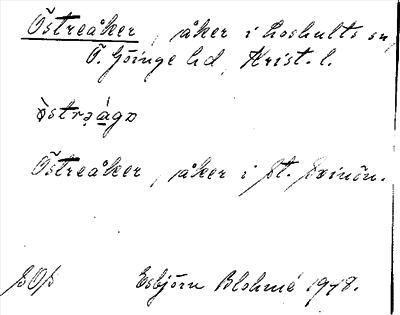 Östreåker, åker i Loshults sn,
Ö. Göinge hd, Krist. l.
Östreåker, åker i St.
Esbjörn Blohmé 1948.